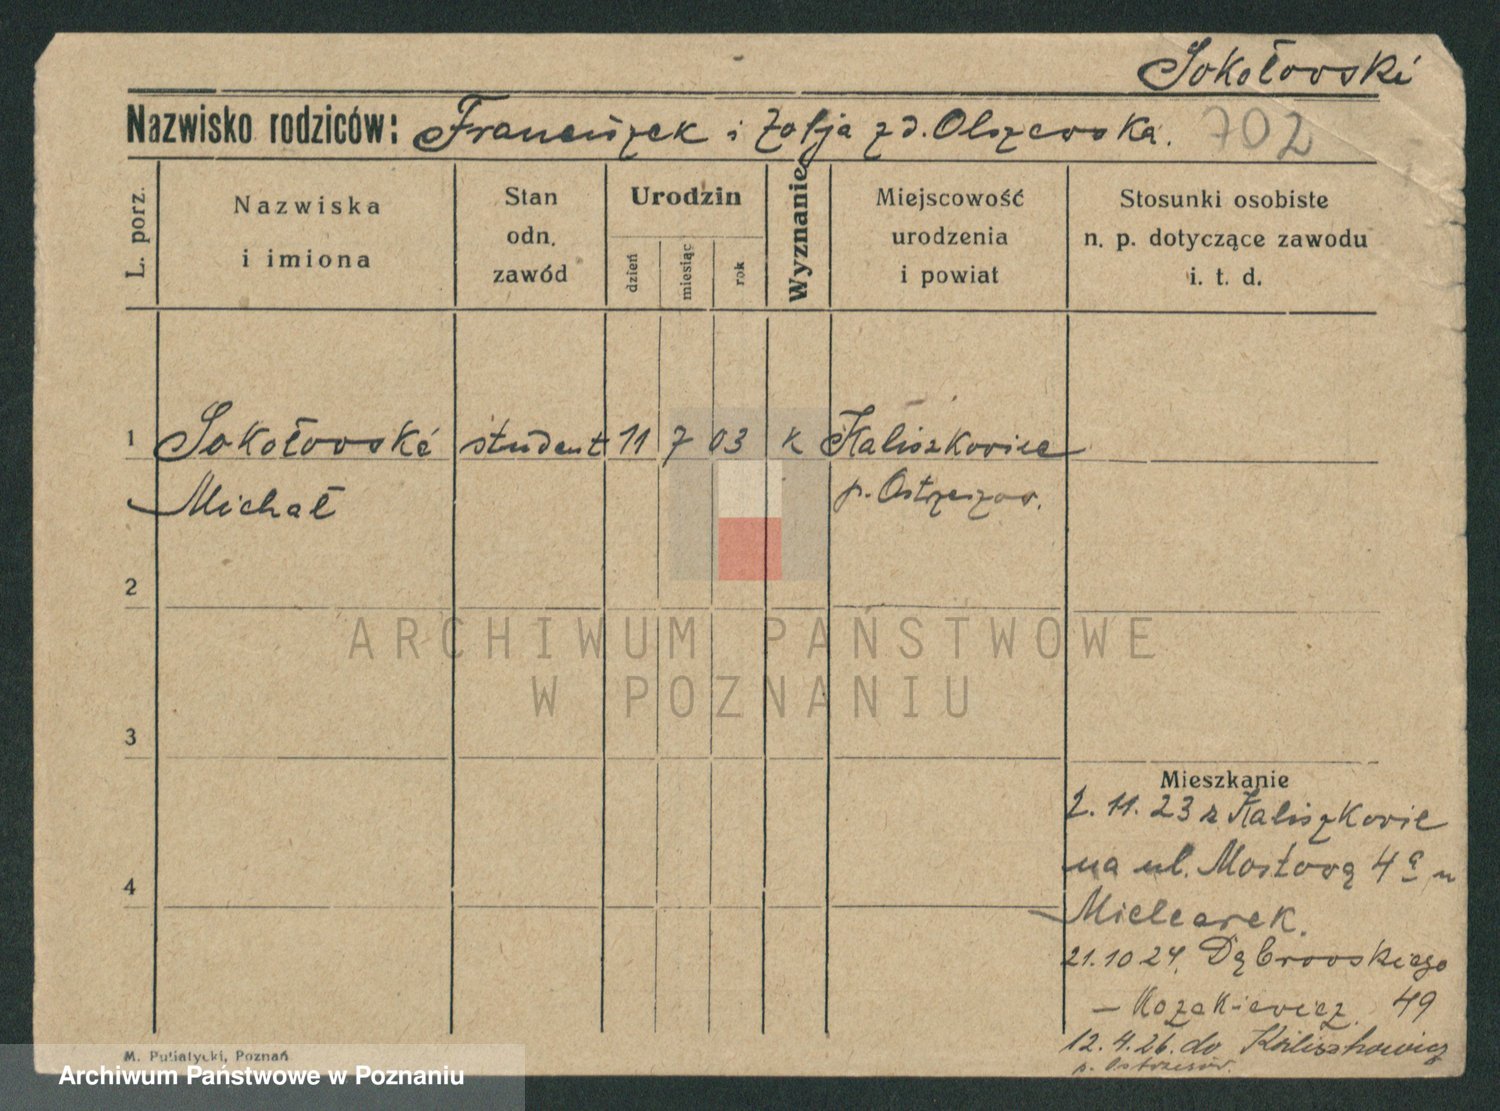 Sokołowski
Nazwisko rodziców: Franciszek i Zofja zd. Olszewska. 702
L. porz.
Nazwiska
i imiona
Stan
odn.
zawód
Urodzin
dzień
miesiąc
rok
Wyznanie
Miejscowość
urodzenia
i powiat
Stosunki osobiste
n. p. dotyczące zawodu
i. t. d.
1 Sokołowski student 11 7 03 k Kaliszkowice
Michał p. Ostrzeszow.
2
ARCHIWUM PAŃSTWOWE
W POZNANIU
3
Mieszkanie
2. 11. 23 z Kaliszkowic
na ul. Mostową 4a u
4
Mielcarek.
21.10 24. Dąbrowskiego
– Kozakiewicz 49
12. 4. 26. do Kaliszkowic
p. Ostrzeszów.
M. Putiatycki, Poznań
Archiwum Państwowe w Poznaniu